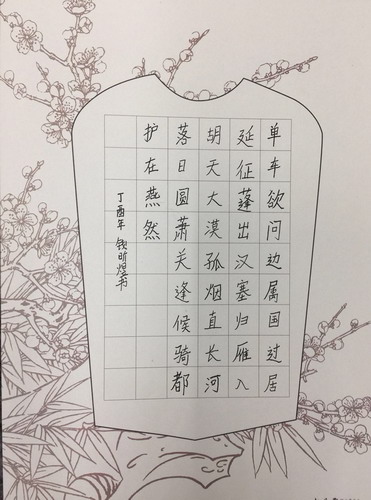 单车欲问边属国过居
延征蓬出汉塞归雁入
胡天大漠孤烟直长河
落日圆萧关逢候骑都
护在燕然
丁酉年 昕煜书